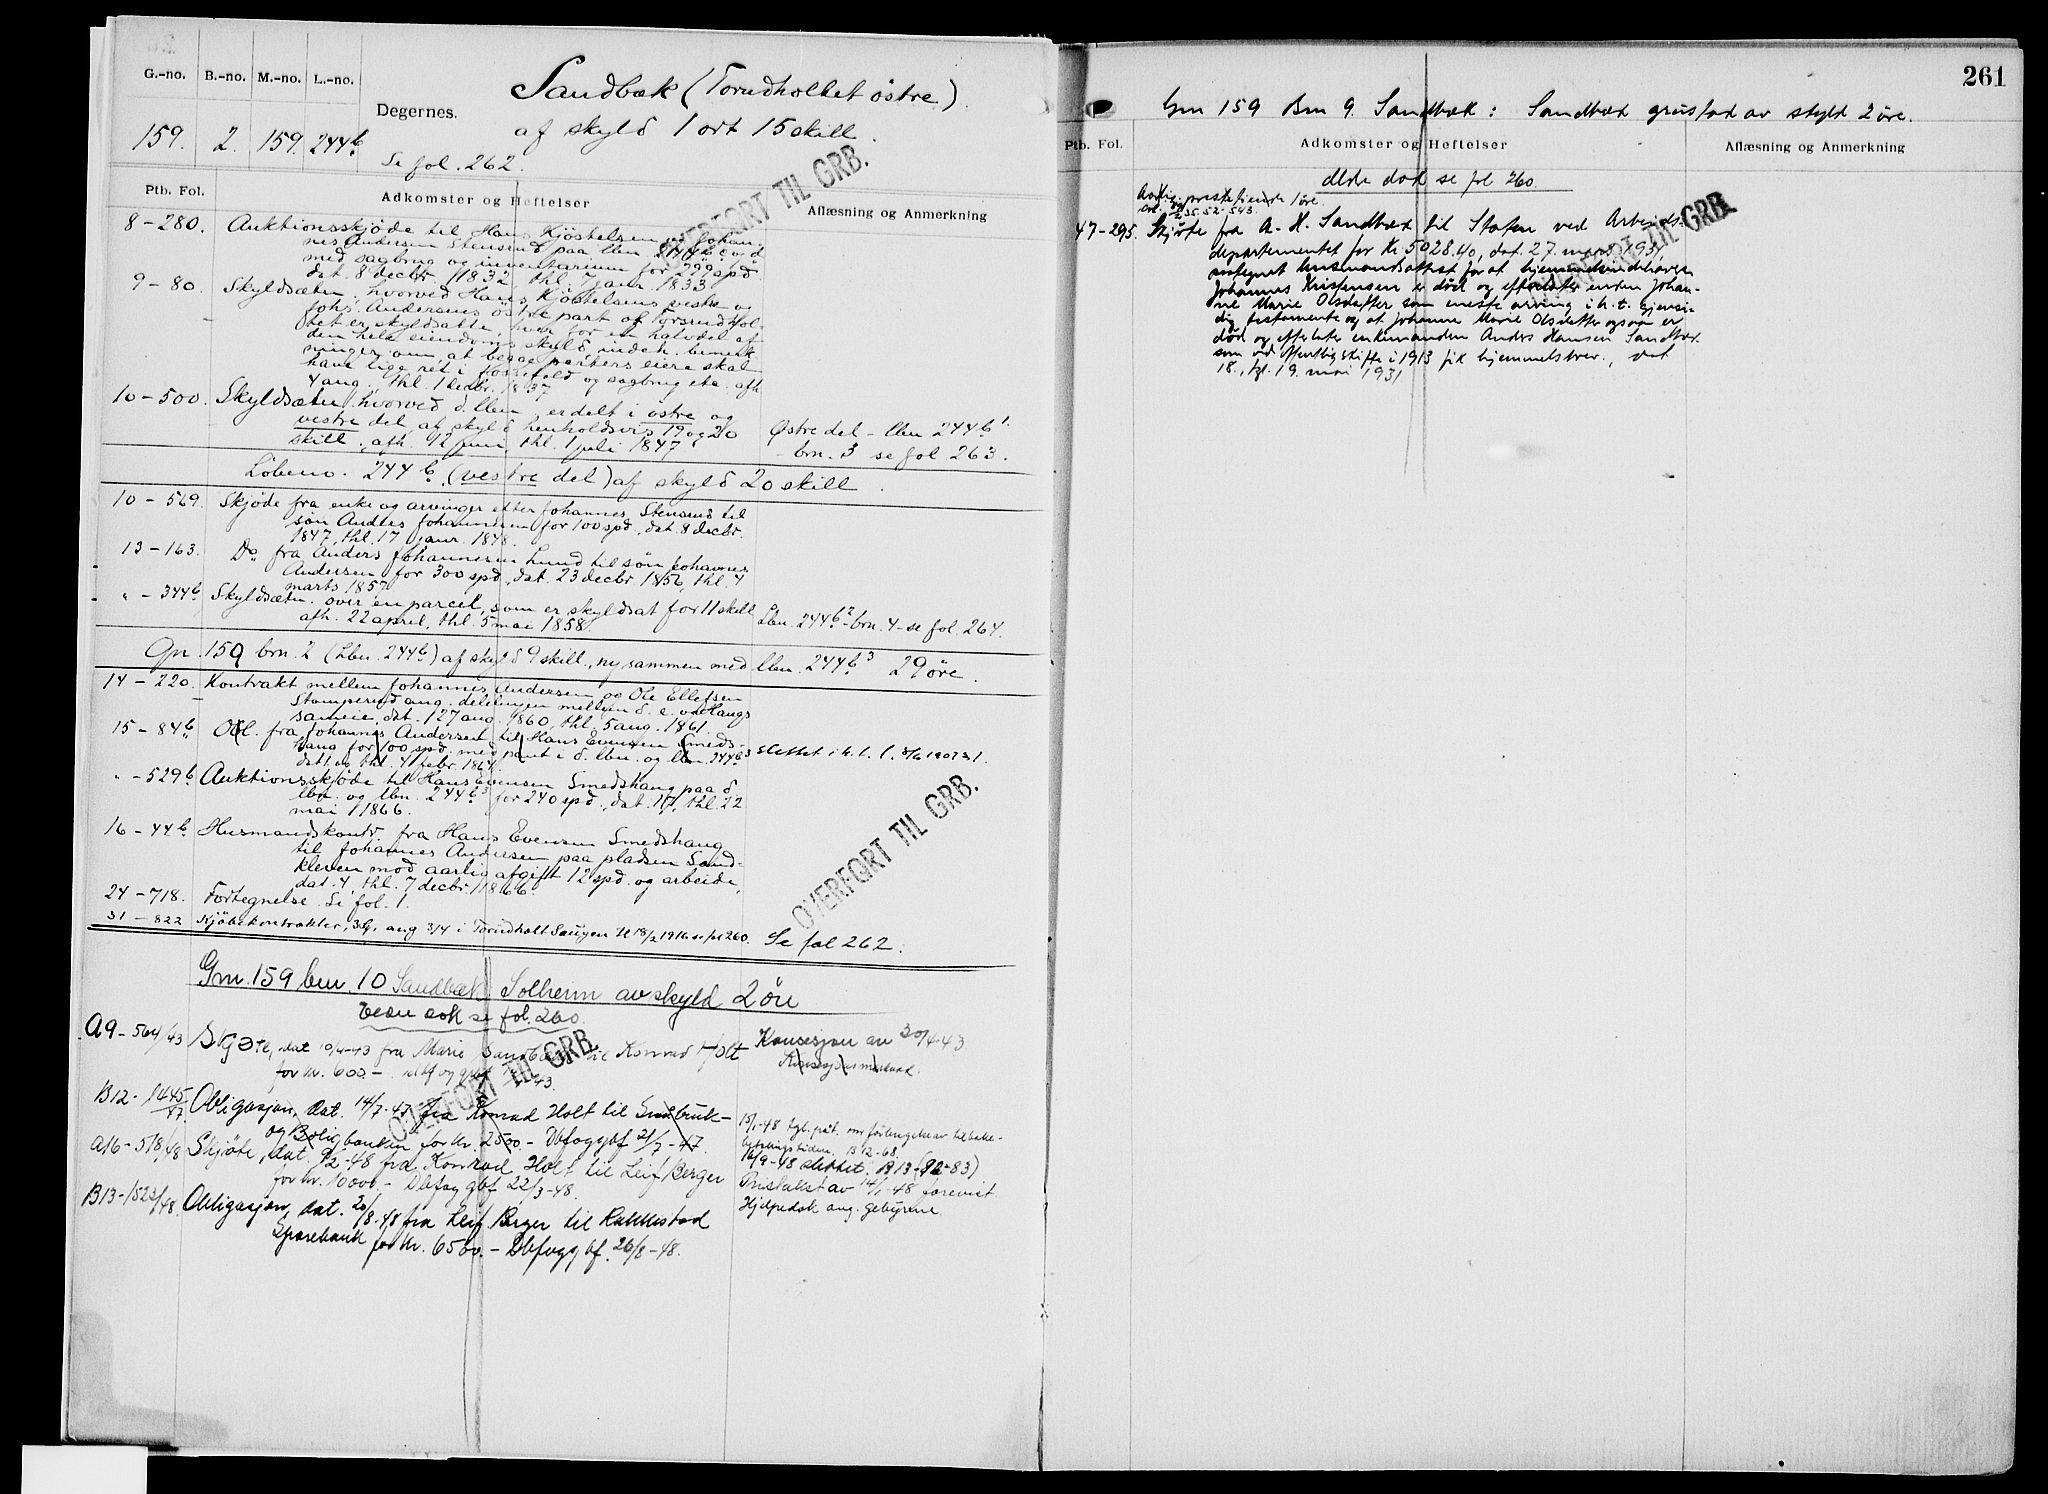 G.-no. B.-no. M.-no. L.-no.
Degernes.
Sandbæk (Torudholtet østre).
159. 2. 159. 244b
af skyld 1 ort 15 skill.
Se fol. 262.
OVERFØRT TIL GRB.
Ptb. Fol. Adkomster og Heftelser Aflæsning og Anmerkning
8-280. Auktionsskjøde til Hans Kjöstelsen og Johan-
nes Andersen Stensrud paa lbn 244b
med sagbrug og inventarium for 299 spd
dat. 8 decbr. 1832 thl. 7 janr. 1833
9-80. Skyldsætn. hvorved Hans Kjöstelsens vestre og
Johs. Andersens östre part af Torsrudhol-
tet er skyldsatte, hver for en halvdel af
den hele eiendoms skyld, indeh. bemerk-
ninger om, at begge parters eiere skal
have lige ret i fossefald og sagbrug etc. afh.
4 aug. thl. 1 decbr. 1837
10-500. Skyldsætn. hvorved d. lbn. er delt i østre og
vestre del af skyld henholdsvis 19 og 20
skill., afh. 12 juni, thl. 1 juli 1847
Østre del - lbn 244b1
- brn. 3 se fol 263.
Löbeno. 244b (vestre del) af skyld 20 skill.
10-569. Skjøde fra enke og arvinger efter Johannes Stensrud til
søn Anders Johannesen for 100 spd., dat. 8 decbr.
1847, thl. 17 janr. 1848.
13-163. Do. fra Anders Johannesen Lund til søn Johannes
Andersen for 300 spd., dat. 23 decbr 1856, thl. 4
marts 1857
" - 344b Skyldsætn. over en parcel, som er skyldsat for 11 skill
afh. 22 april, thl. 5 mai 1858.
Lbn. 244b2 - brn. 4 - se fol. 264.
Gn. 159 brn. 2 (Lbn. 244b) af skyld 9 skill., ny sammen med lbn. 244b3 29 øre.
14-220. Kontrakt mellem Johannes Andersen og Ole Ellefsen
Stomperud ang. delelinjen mellem d. e. og Haugs
sameie, dat. 27 aug. 1860, thl. 5 aug. 1861.
15-84b Obl. fra Johannes Andersen til Hans Evensen Smeds-
haug for 100 spd. med pant i d. lbn. og lbn. 244b3
dat. og thl. 4 febr. 1864
slettet i h. t. l. 8/6 1907 § 1.
" - 529b Auktionsskjøde til Hans Evensen Smedshaug paa d.
lbn. og lbn. 244b3 for 240 spd., dat. 17, thl. 22
mai 1866.
16-44b Husmandskontr. fra Hans Evensen Smedshaug
til Johannes Andersen paa pladsen Sand-
kleven mod aarlig afgift 12 spd. og arbeide,
dat. 4, thl. 7 decbr. 1866.
OVERFØRT TIL GRB.
24-718. Fortegnelse. Se fol. 1.
31-822 Kjøbekontrakter, 39, ang 3/4 i Torudholt Saugen tl 18/2 1916 se fol 260.
Se fol 262.
Gnr. 159 bnr. 10 Sandbæk Solheim av skyld 2 öre
Eiere dok se fol. 260.
A9-564/43 Skjøte, dat 10/4-43 fra Marie Sandbæk til Konrad Holt
for kr. 600.-
Konsesjon av 30/4-43
OVERFØRT TIL GRB.
B12-1445/47 Obligasjon, dat. 14/7-47 fra Konrad Holt til Småbruk-
og Boligbanken for kr. 2500.- Dbfoggbf 21/7-47.
15/1-48 tgl. påt. om forlengelse av tilbake-
betalingstiden. B12-68.
16/9-48 slettet. B13-(82-83)
A16-518/48 Skjøte, dat 9/2-48 fra Konrad Holt til Leif Berger
for kr. 10000.- Dbfoggbf 22/3-48.
Pristakst av 14/1-48 forevist.
Hjelpedok ang. gebyrene.
B13-1523/48 Obligasjon, dat. 20/8-48 fra Leif Berger til Rakkestad
Sparebank for kr. 6500.- Dbfoggbf. 26/8-48.
261
Gnr 159 Bnr 9. Sandbæk: Sandbæk grustak av skyld 2 øre.
Ptb. Fol. Adkomster og Heftelser Aflæsning og Anmerkning
eldre dok se fol 260.
47-295. Skjøte fra A. H. Sandbæk til Staten ved Arbeids-
departementet for Kr 5028.40, dat. 27. mars 1931,
paategnet lensmandsattest for at hjemmelsindehaveren
Johannes Kristensen er død og efterlater enken Johan-
ne Marie Olsdatter som eneste arving i h. t. gjensi-
dig testamente og at Johanne Marie Olsdatter ogsaa er
død og efterlater enkemanden Anders Hansen Sandbæk
som ved offentlig skifte i 1913 fik hjemmelsbrev., dat
18., tgl. 19. mai 1931
OVERFØRT TIL GRB.